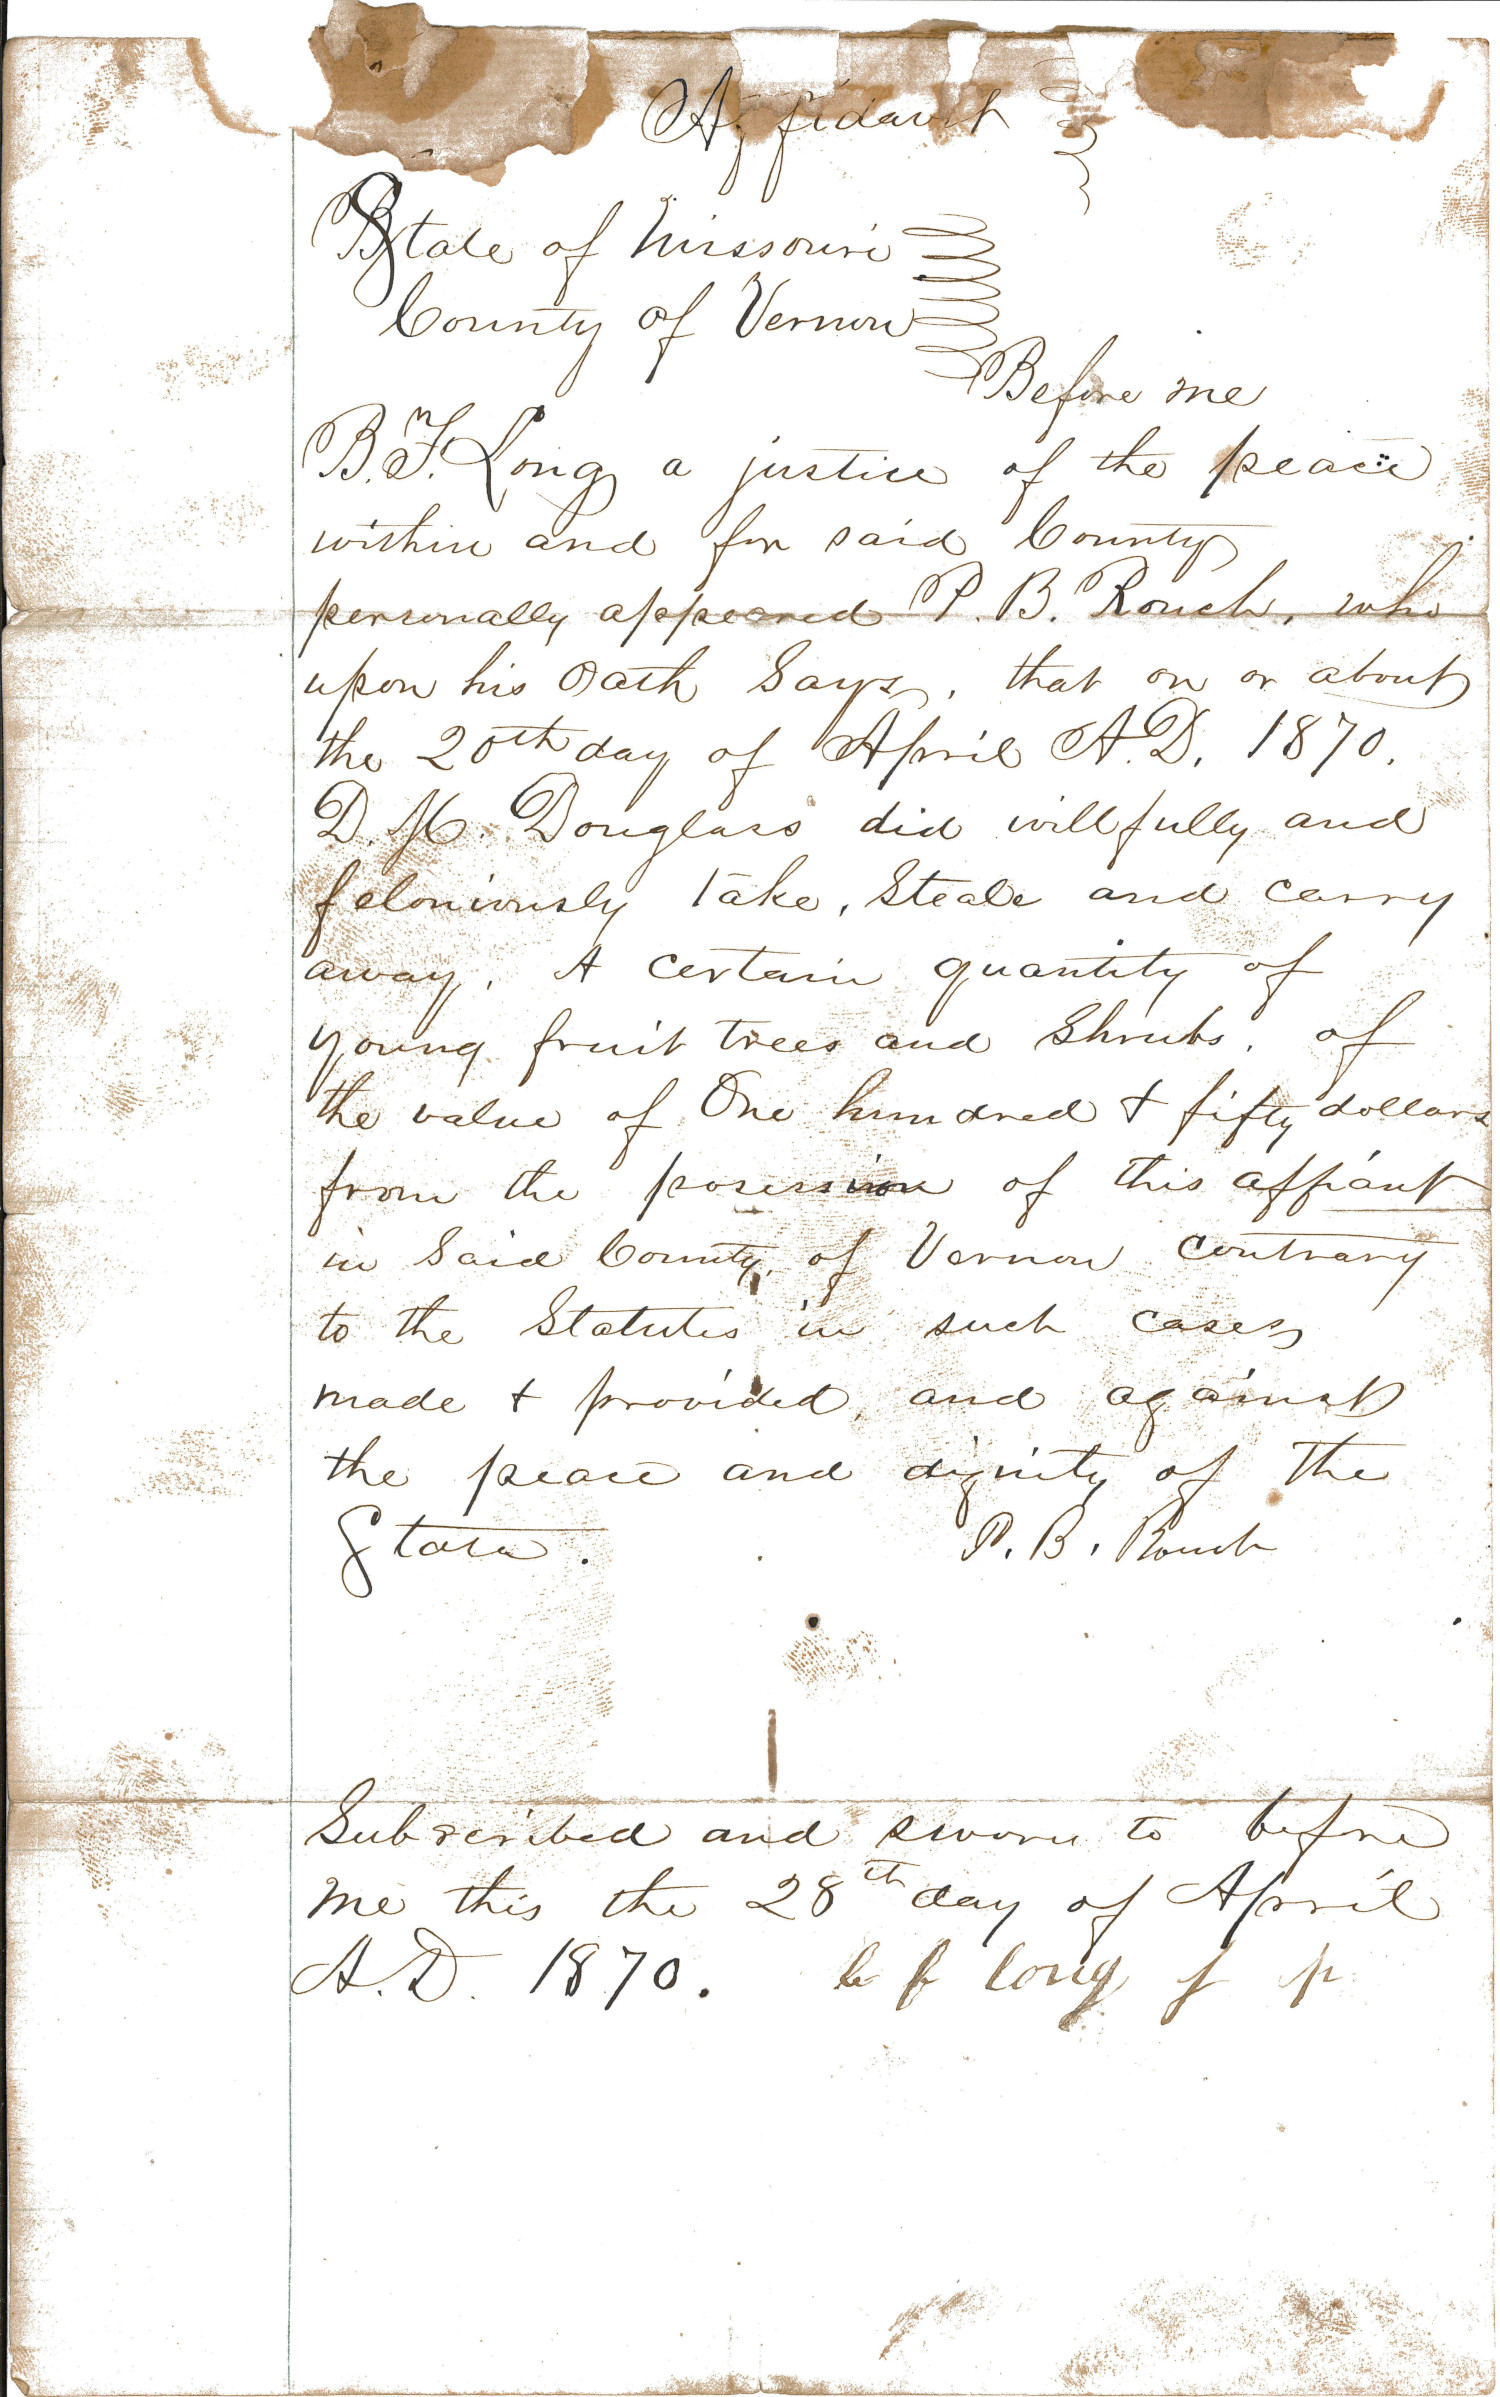 Affidavit
State of Missouri
County of Vernon
Before me
B. F. Long a justice of the peace
within and for said County
personally appeared P. B. Rouch, who
upon his Oath Says, that on or about
the 20th day of April A.D. 1870.
D. M. Douglass did willfully and
feloniously take, Steale and carry
away, A certain quantity of
young fruit trees and Shrubs, of
the value of One hundred & fifty dollars
from the posession of this affiant
in Said County, of Vernon contrary
to the Statutes in such cases
made & provided, and against
the peace and dignity of the
State.
P. B. Rouch
Subscribed and sworn to before
me this the 28th day of April
A.D. 1870. b f long j p